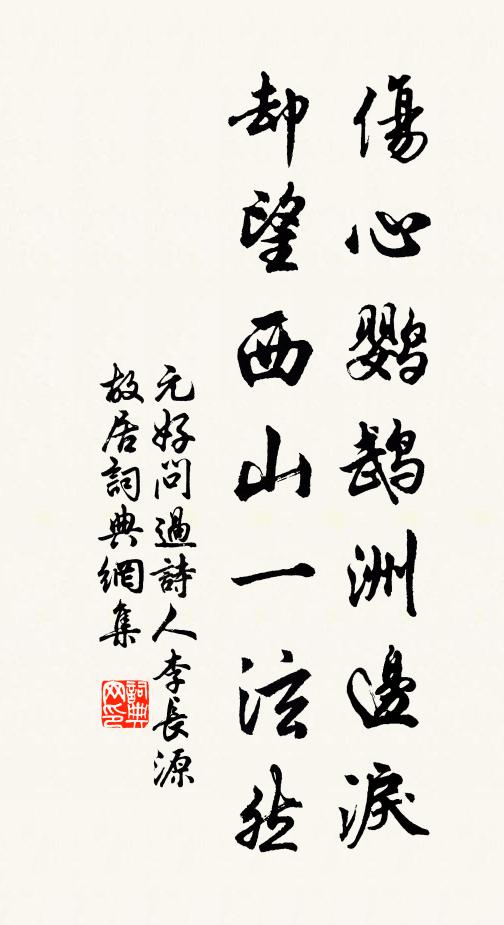 傷心鸚鵡洲邊淚
却望西山一泫然
元好問過詩人李長源
故居詞典網集
詞典
网印